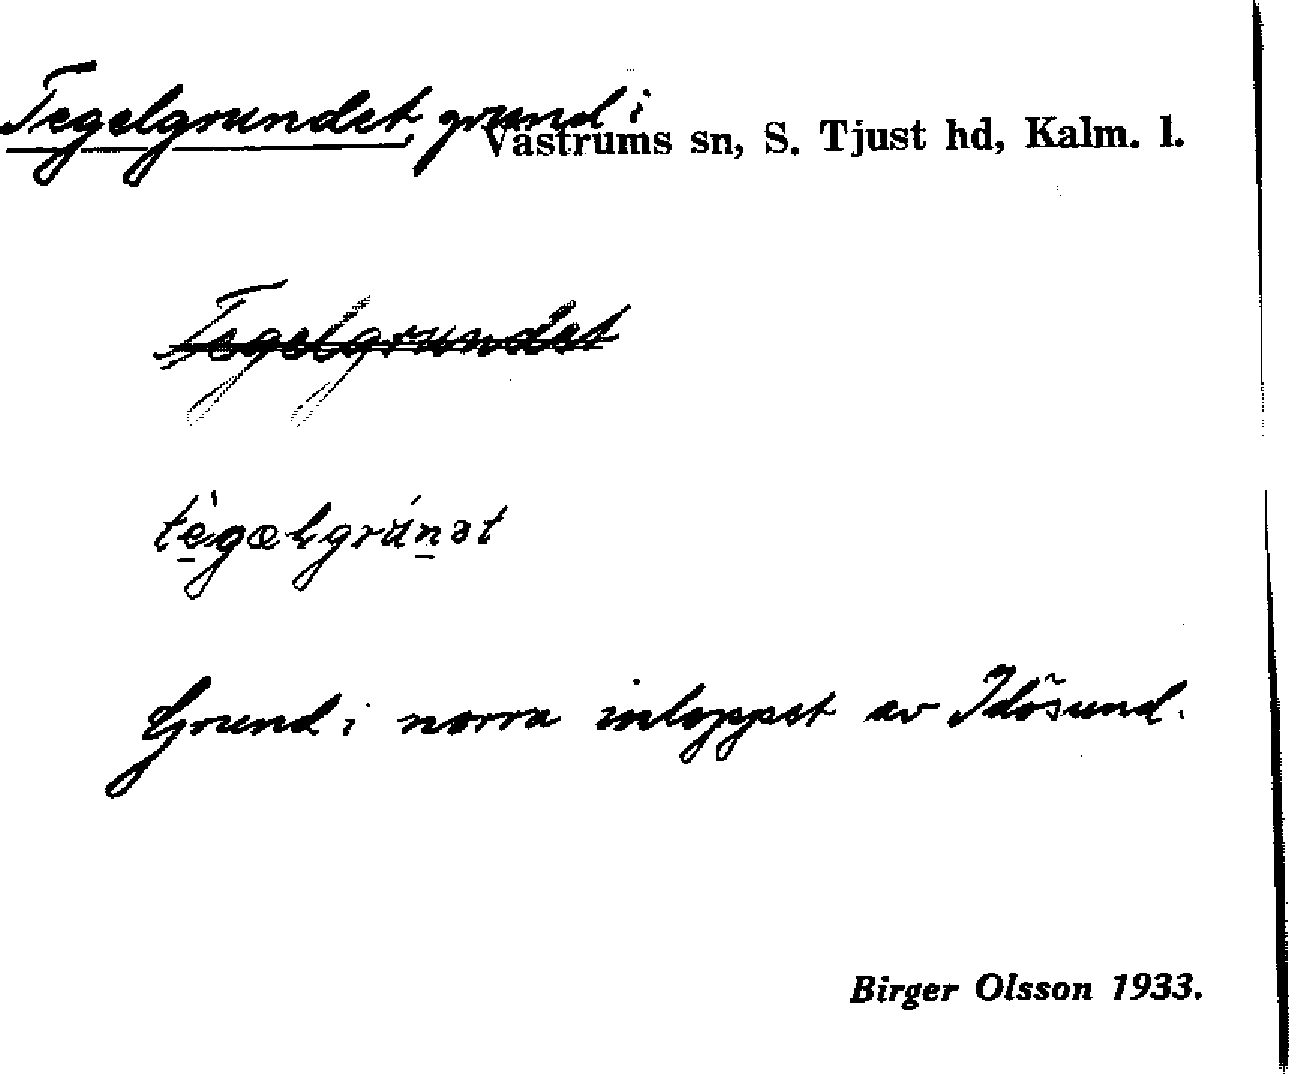 Tegelgrundet, grund i Västrums sn, S. Tjust hd, Kalm. l.
Tegelgrundet
Grund i norra inloppet av Idösund.
Birger Olsson 1933.